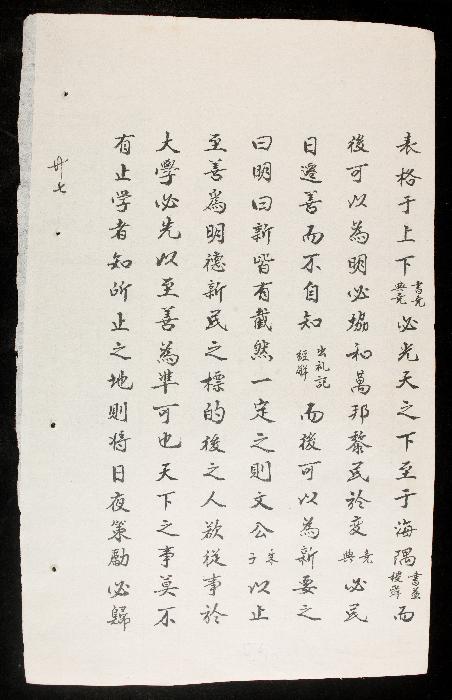 表格于上下書堯典堯必光天之下至于海隅書益稷辭而
後可以為明必協和萬邦黎民於变堯典必民
日遷善而不自知出礼記經解而後可以為新要之
曰明曰新皆有截然一定之則文公朱子以止
至善為明德新民之標的後之人欲從事於
大學必先以至善為準可也天下之事莫不
有止学者知所止之地則将日夜策勵必歸
卅七